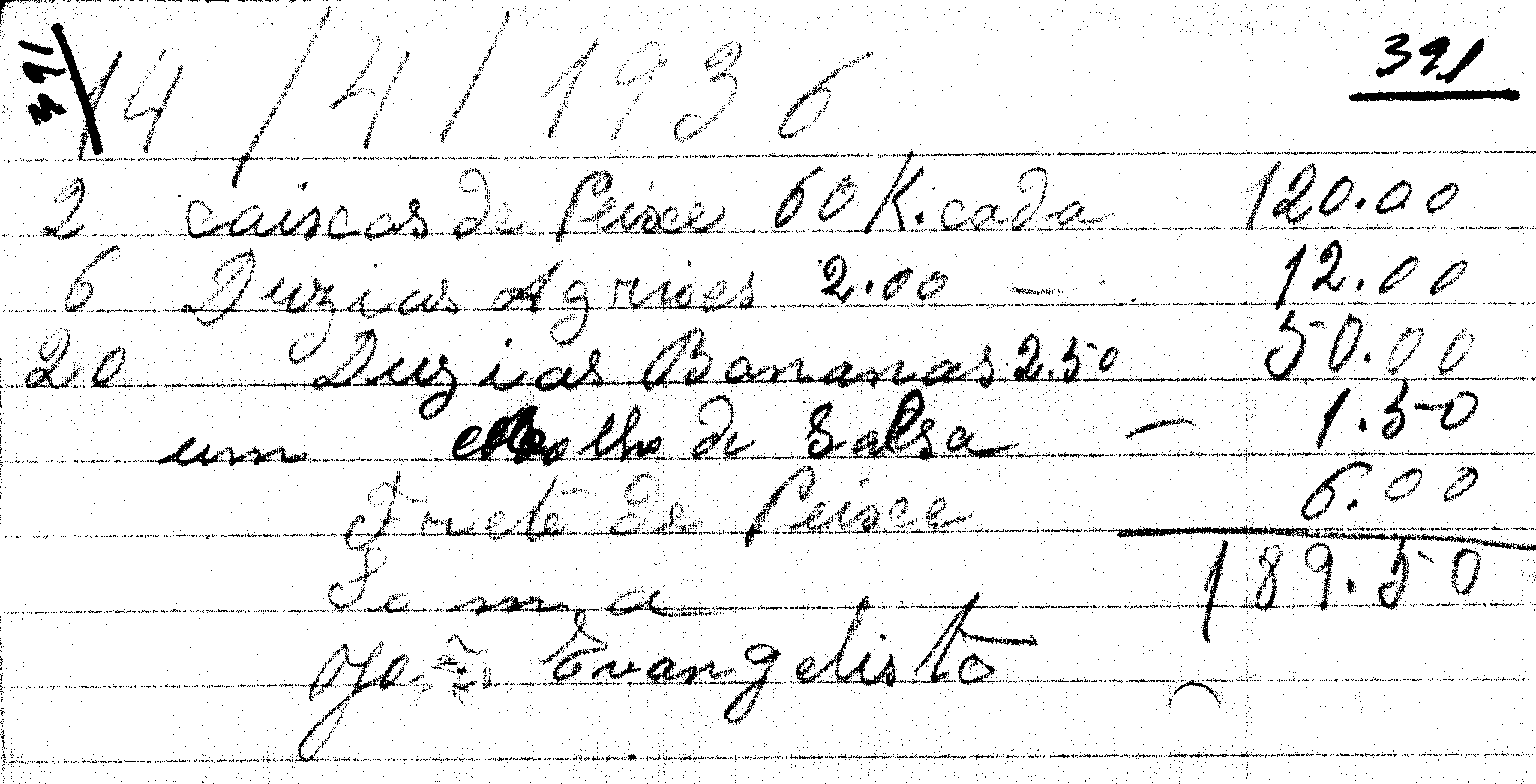 391
391
14/4/1936
2 caixas de Peixe 60 K. cada 120.00
6 Duzias Agrioes 2.00 — 12.00
20 Duzias Bananas 2.50 50.00
um molho de Salsa — 1.50
Frete de Peixe 6.00
Soma 189.50
João Evangelista